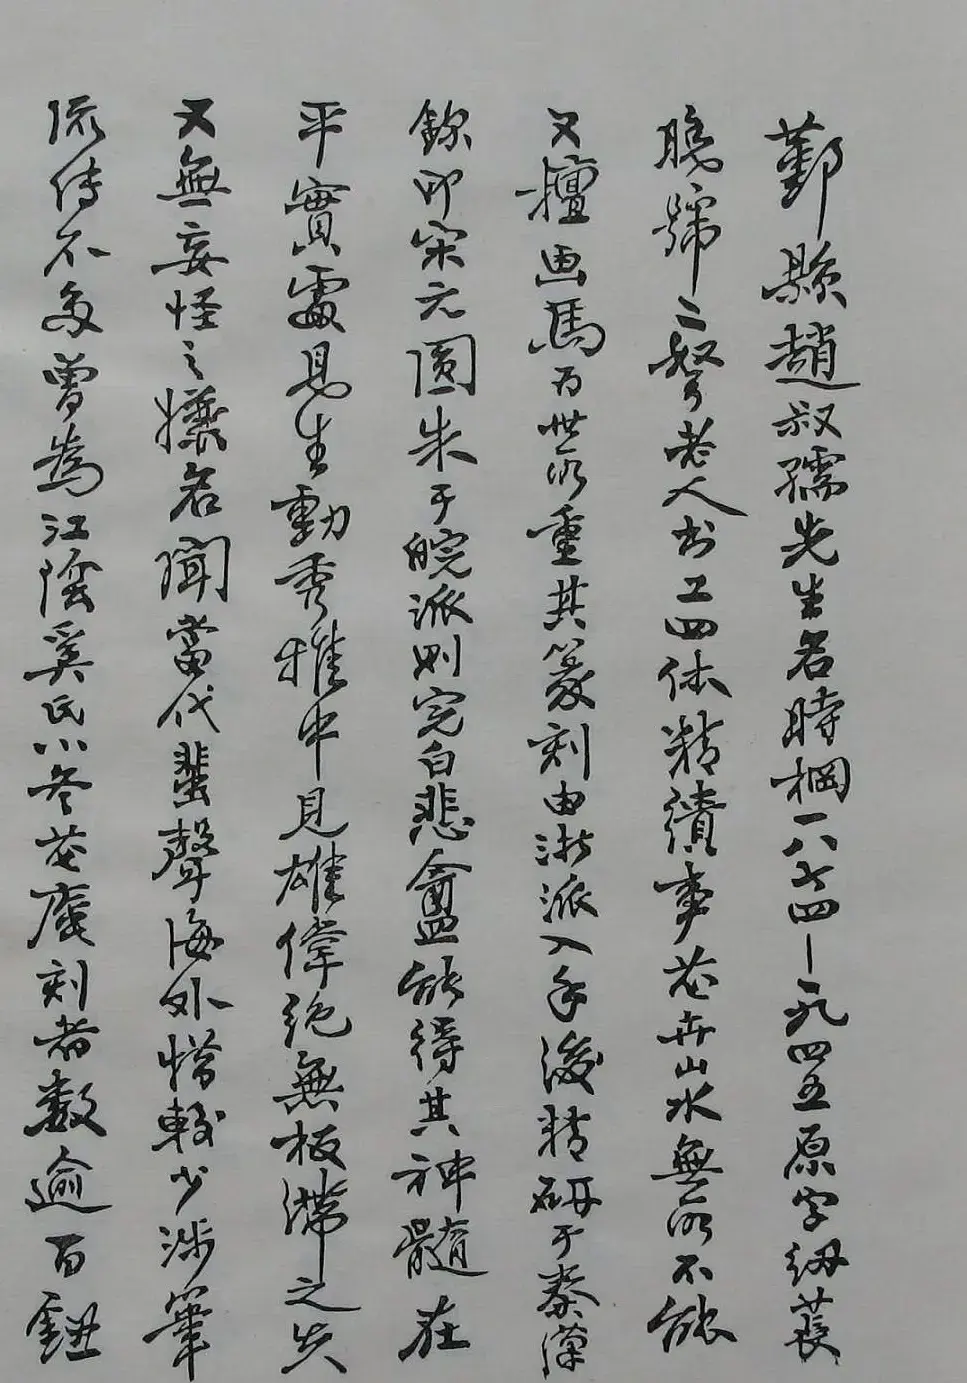 鄞縣趙叔孺先生名時棡一八七四—一九四五原字紉萇
晚號二弩老人書工四体精繢事花卉山水無所不能
又擅画馬为世所重其篆刻由浙派入手後精研于秦漢
鉨印宋元圆朱于皖派则完白悲盦能得其神髓在
平實處見生動秀雅中見雄偉絶無板滞之失
又無妄怪之攘名聞當代蜚聲海外惜較少涉筆
流傳不多曾為江陰奚氏小冬花庵刻者数逾百鈕